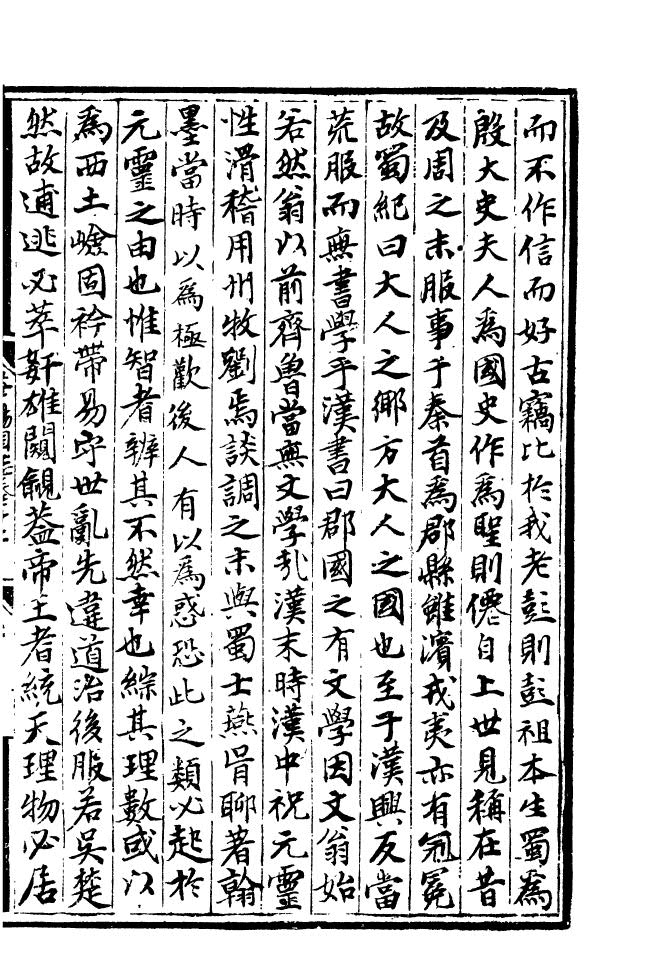 而不作信而好古竊比於我老彭則彭祖本生蜀爲
殷大史夫人爲國史作爲聖則僊自上世見稱在昔
及周之末服事于秦首爲郡縣雖濱戎夷亦有冠冕
故蜀紀曰大人之鄉方大人之國也至于漢興反當
荒服而無書學乎漢書曰郡國之有文學因文翁始
若然翁以前齊魯當無文學㢤漢末時漢中祝元靈
性滑稽用州牧劉焉談調之末與蜀士燕胥聊著翰
墨當時以爲極歡後人有以爲惑恐此之類必起於
元靈之由也惟智者辨其不然幸也綜其理數或以
爲西土嶮固衿帶易守世亂先違道治後服若吳楚
然故逋逃必萃奸雄闚覦葢帝王者統天理物必居